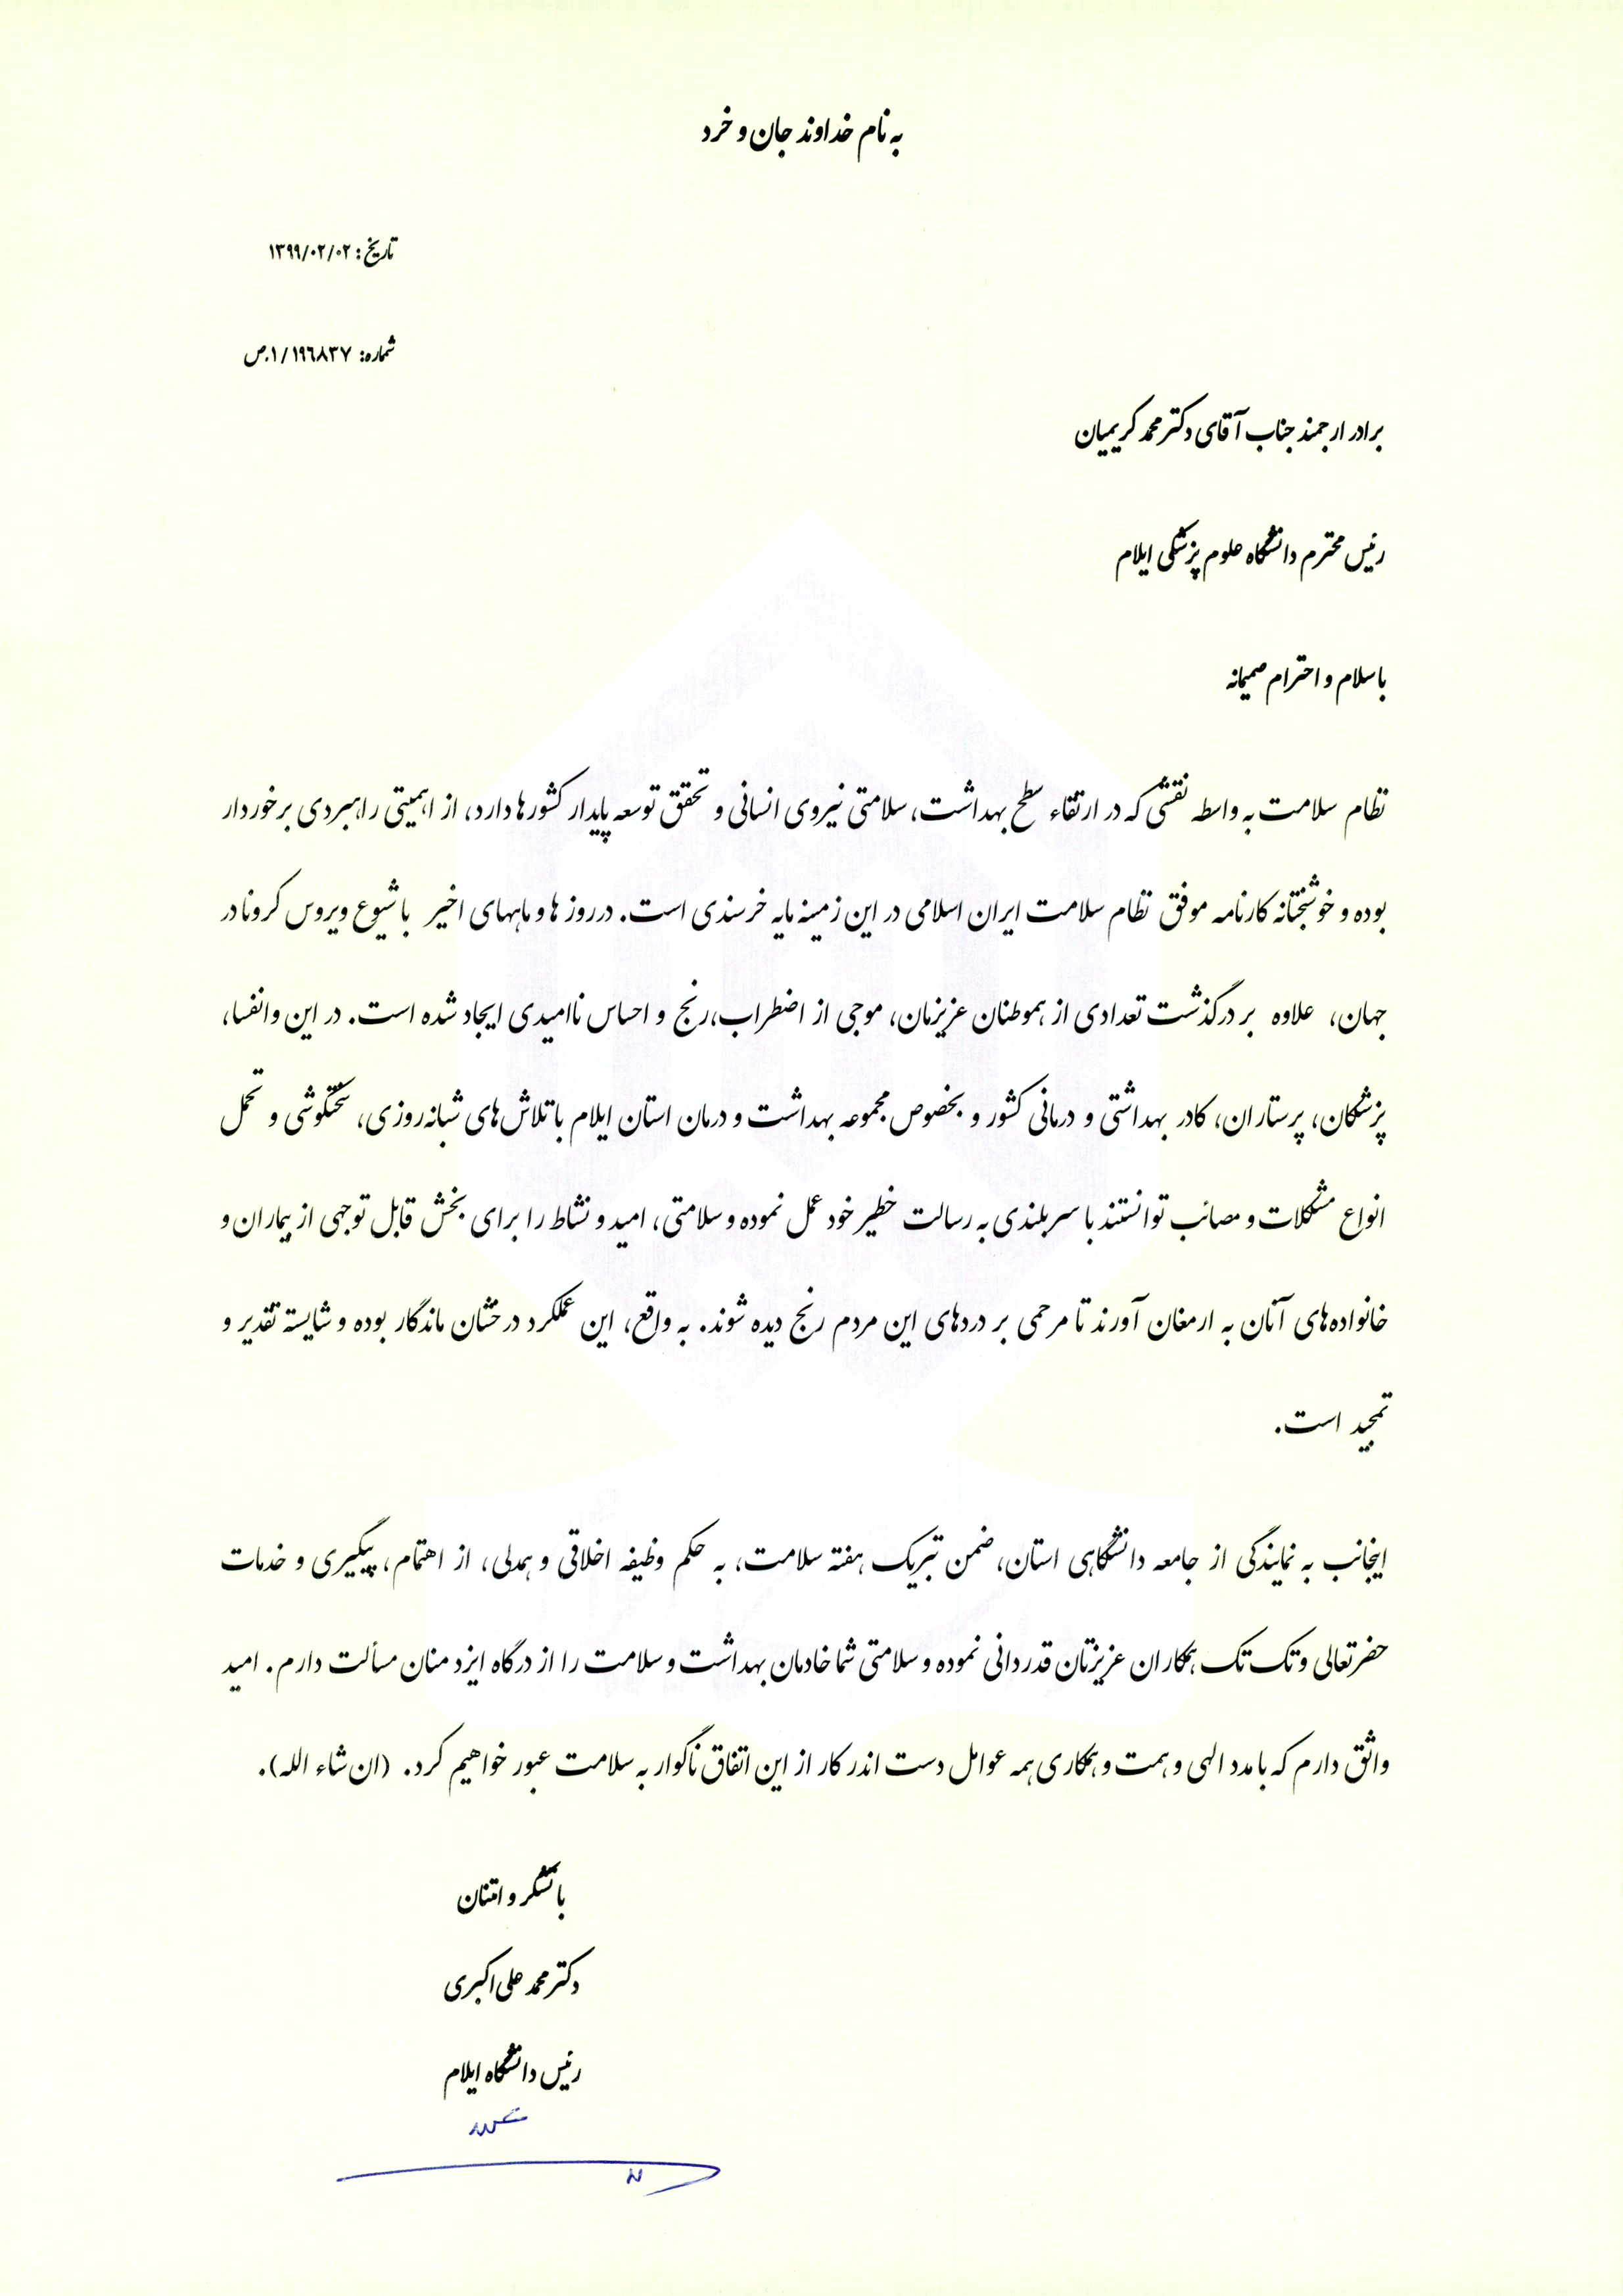 به نام خداوند جان و خرد
تاریخ: ۱۳۹۹/۰۲/۰۲
شماره: ۱/۱۹٦۸۳۷.ص
برادر ارجمند جناب آقای دکتر محمد کریمیان
رئیس محترم دانشگاه علوم پزشکی ایلام
با سلام و احترام صمیمانه
نظام سلامت به واسطه نقشی که در ارتقاء سطح بهداشت، سلامتی نیروی انسانی و تحقق توسعه پایدار کشورها دارد، از اهمیتی راهبردی برخوردار
بوده و خوشبختانه کارنامه موفق نظام سلامت ایران اسلامی در این زمینه مایه خرسندی است. در روز ها و ماههای اخیر با شیوع ویروس کرونا در
جهان، علاوه بر درگذشت تعدادی از هموطنان عزیزمان، موجی از اضطراب،رنج و احساس ناامیدی ایجاد شده است. در این وانفسا،
پزشکان، پرستاران، کادر بهداشتی و درمانی کشور و بخصوص مجموعه بهداشت و درمان استان ایلام با تلاش‌های شبانه‌روزی، سختکوشی و تحمل
انواع مشکلات و مصائب توانستند با سربلندی به رسالت خطیر خود عمل نموده و سلامتی، امید و نشاط را برای بخش قابل توجهی از بیماران و
خانواده‌های آنان به ارمغان آورند تا مرحمی بر دردهای این مردم رنج دیده شوند. به واقع، این عملکرد درخشان ماندگار بوده و شایسته تقدیر و
تمجید است.
اینجانب به نمایندگی از جامعه دانشگاهی استان، ضمن تبریک هفته سلامت، به حکم وظیفه اخلاقی و همدلی، از اهتمام، پیگیری و خدمات
حضرتعالی و تک تک همکاران عزیزتان قدردانی نموده و سلامتی شما خادمان بهداشت و سلامت را از درگاه ایزد منان مسألت دارم. امید
واثق دارم که با مدد الهی و همت و همکاری همه عوامل دست اندر کار از این اتفاق ناگوار به سلامت عبور خواهیم کرد. (ان شاء الله).
با تشکر و امتنان
دکتر محمد علی اکبری
رئیس دانشگاه ایلام